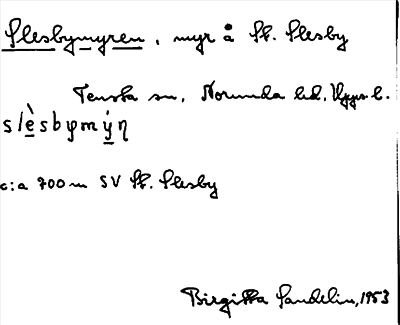 Slesbymyren, myr å St. Slesby
Tensta sn, Norunda hd, Upps l.
slèsbymýn
c:a 700 m SV St. Slesby
Birgitta Sandelin, 1953